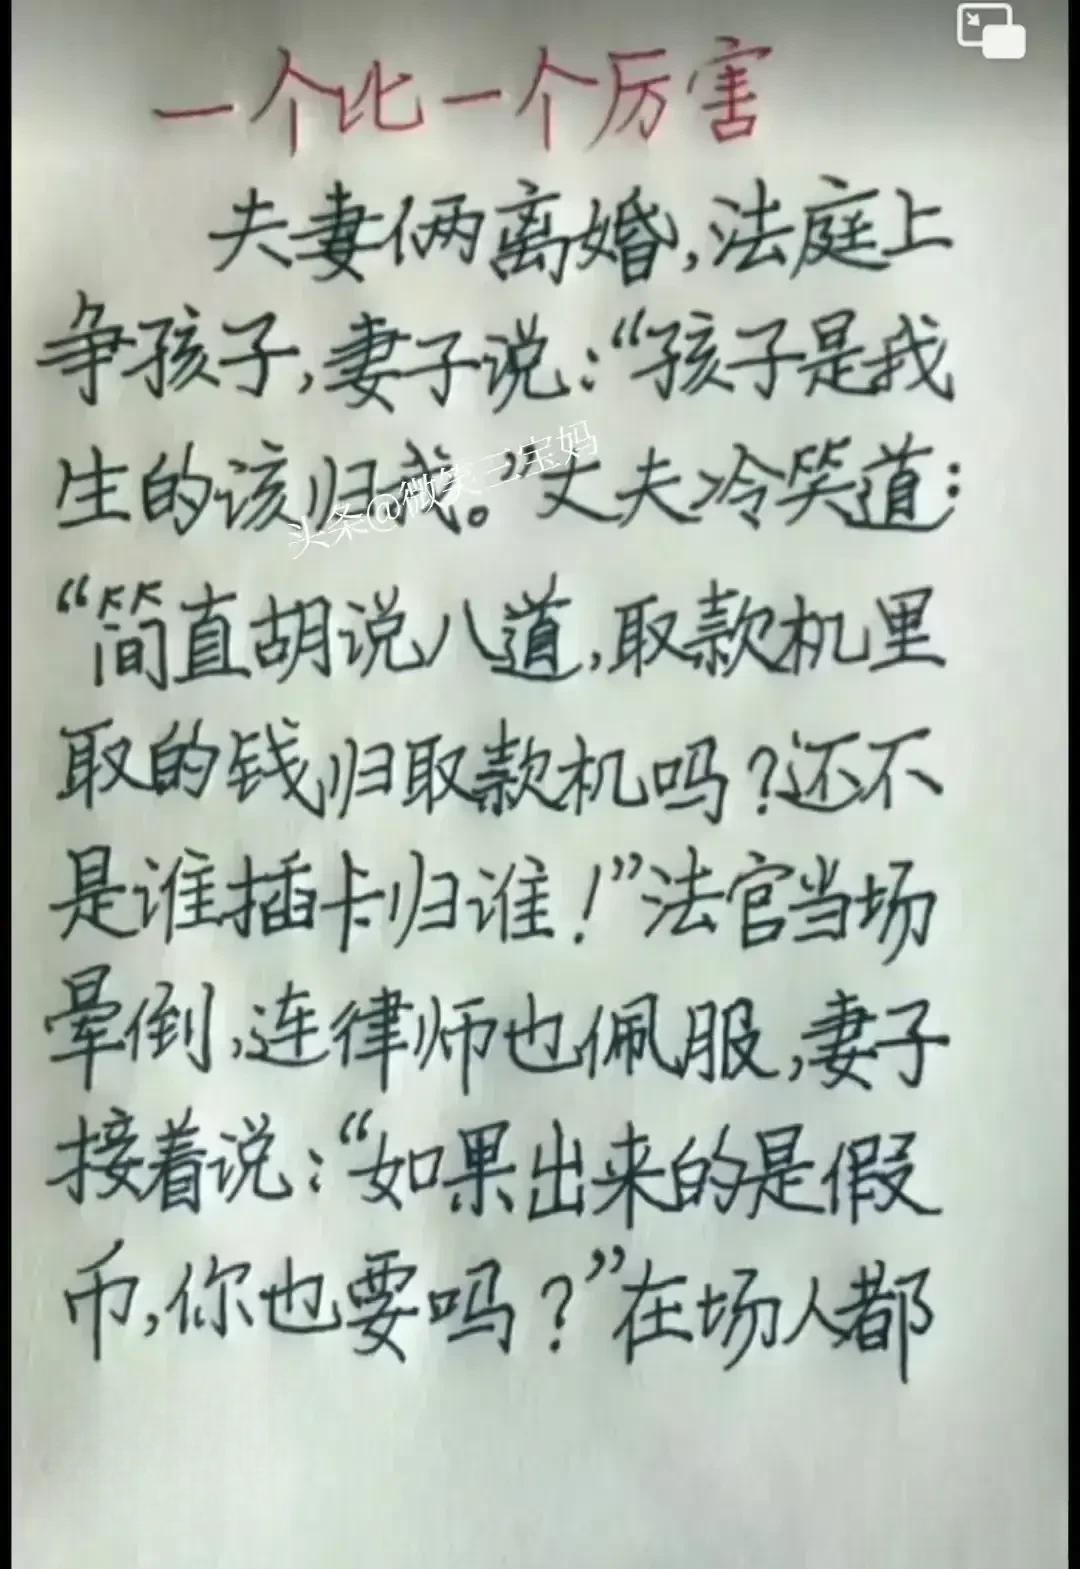 一个比一个厉害
夫妻俩离婚，法庭上
争孩子，妻子说：“孩子是我
生的该归我。”丈夫冷笑道：
头条@微笑三宝妈
“简直胡说八道，取款机里
取的钱归取款机吗？还不
是谁插卡归谁！”法官当场
晕倒，连律师也佩服，妻子
接着说：“如果出来的是假
币，你也要吗？”在场人都